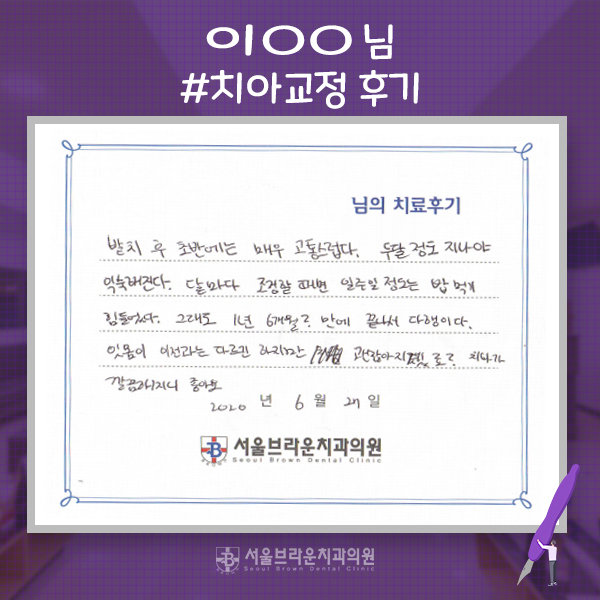 이○○ 님
#치아교정 후기
님의 치료후기
발치 후 초반에는 매우 고통스럽다. 두달 정도 지나야
익숙해진다. 달마다 조정할 때면 일주일 정도는 밥 먹기
힘들었다. 그래도 1년 6개월? 만에 끝나서 다행이다.
잇몸이 이전과는 다르긴 하지만 괜찮아지겠 치아가
깔끔해지니 좋아보
2020 년 6 월 27 일
B 서울브라운치과의원
Seoul Brown Dental Clinic
B 서울브라운치과의원
Seoul Brown Dental Clinic